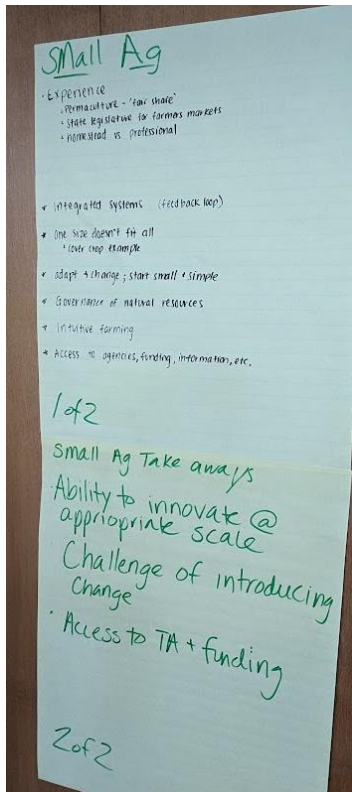 Small Ag
· Experience
· Permaculture - 'fair share'
· State legislature for farmers markets
· homestead vs professional
* Integrated Systems (feedback loop)
* One size doesn't fit all
* cover crop example
* adapt + change ; start small + simple
* Governance of natural resources
* Intuitive farming
* Access to agencies, funding, information, etc.
1 of 2
Small Ag Take aways
· Ability to innovate @
appriopriate scale
Challenge of introducing
Change
· Access to TA + funding
2 of 2